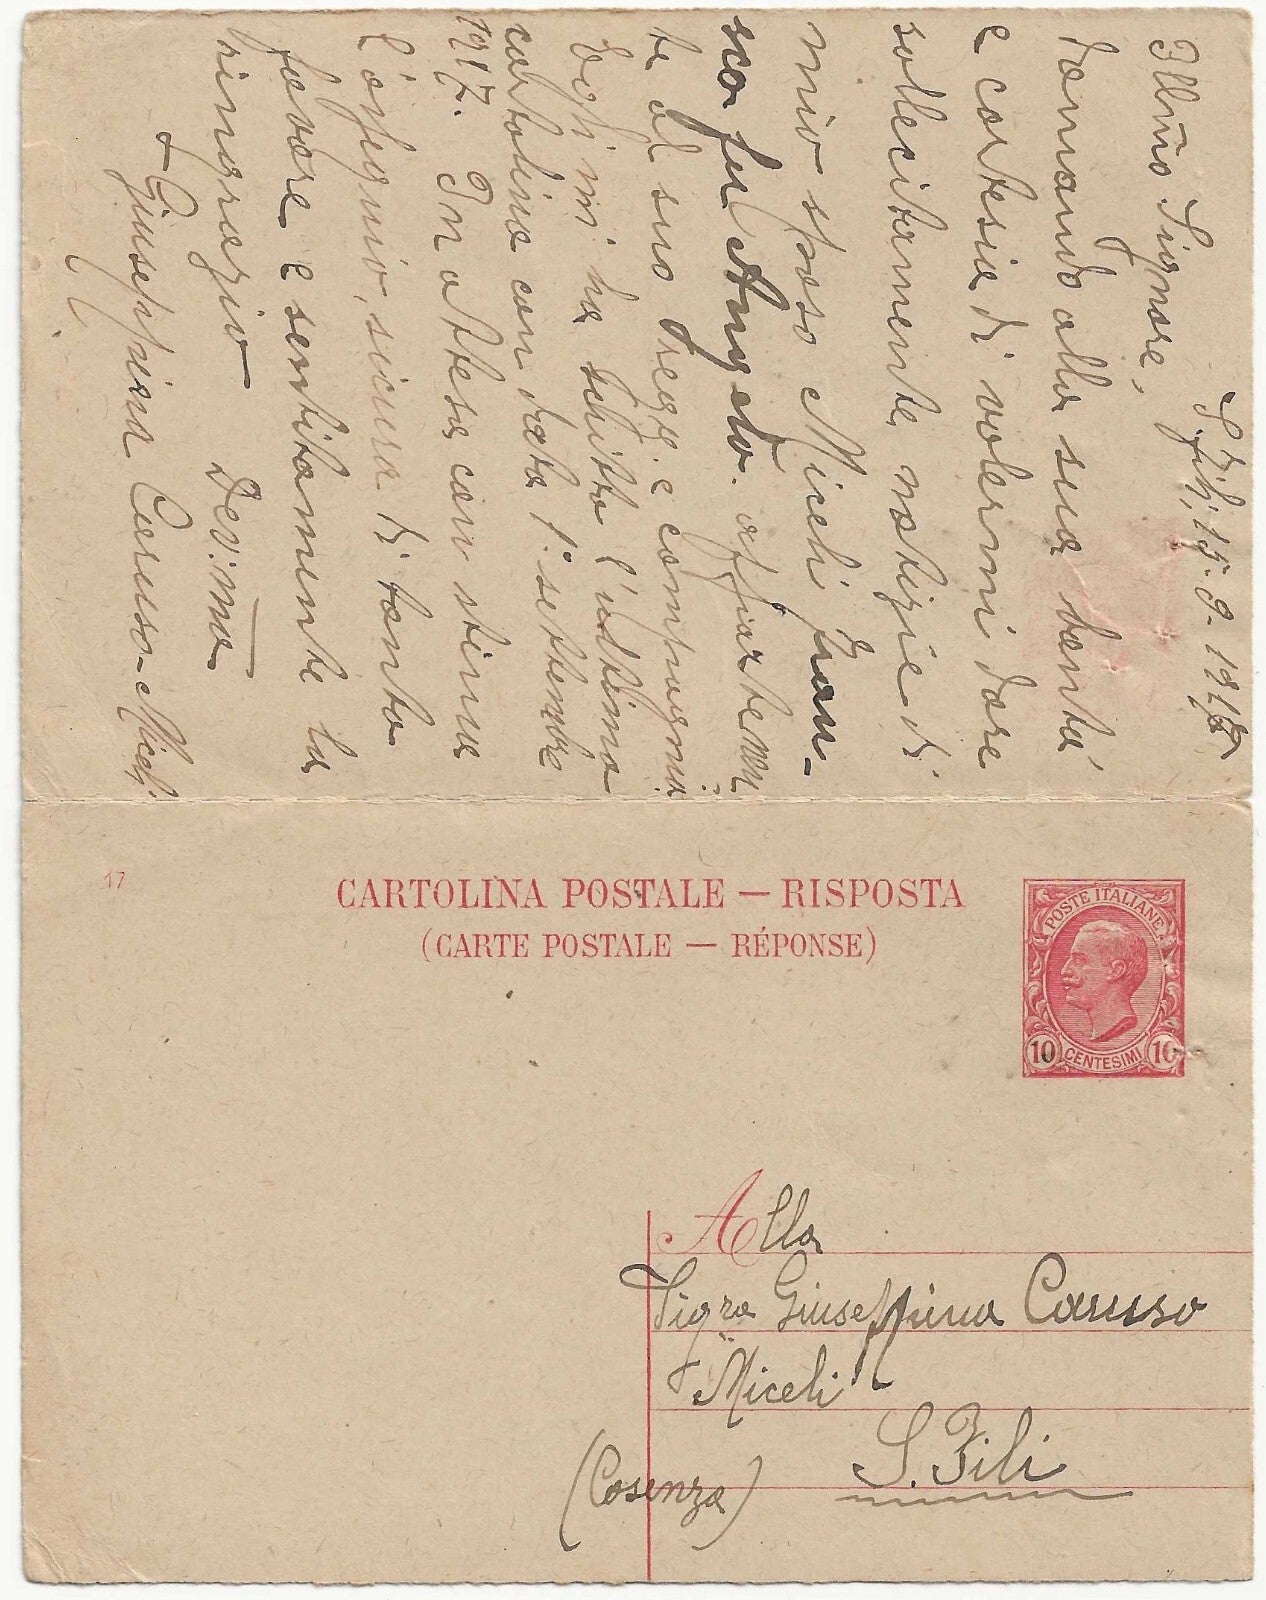 S. Fili, 15. 9. 1917
Illmo Signore,
Domando alla sua bontà
e cortesia di volermi dare
sollecitamente notizie di
mio sposo Miceli Fran-
sco fu Angelo. appartenen
te al suo regg. e compagnia
Egli mi ha scritto l'ultima
cartolina con data 1° settembre
1917. In attesa con stima
l'ossequio, sicura di tanto
favore e sentitamente la
ringrazio
Dev:ma
Giuseppina Caruso-Miceli
17
CARTOLINA POSTALE — RISPOSTA
(CARTE POSTALE — RÉPONSE)
POSTE ITALIANE
10 CENTESIMI 10
Alla
Sigra Giuseppina Caruso
Miceli
S. Fili
(Cosenza)